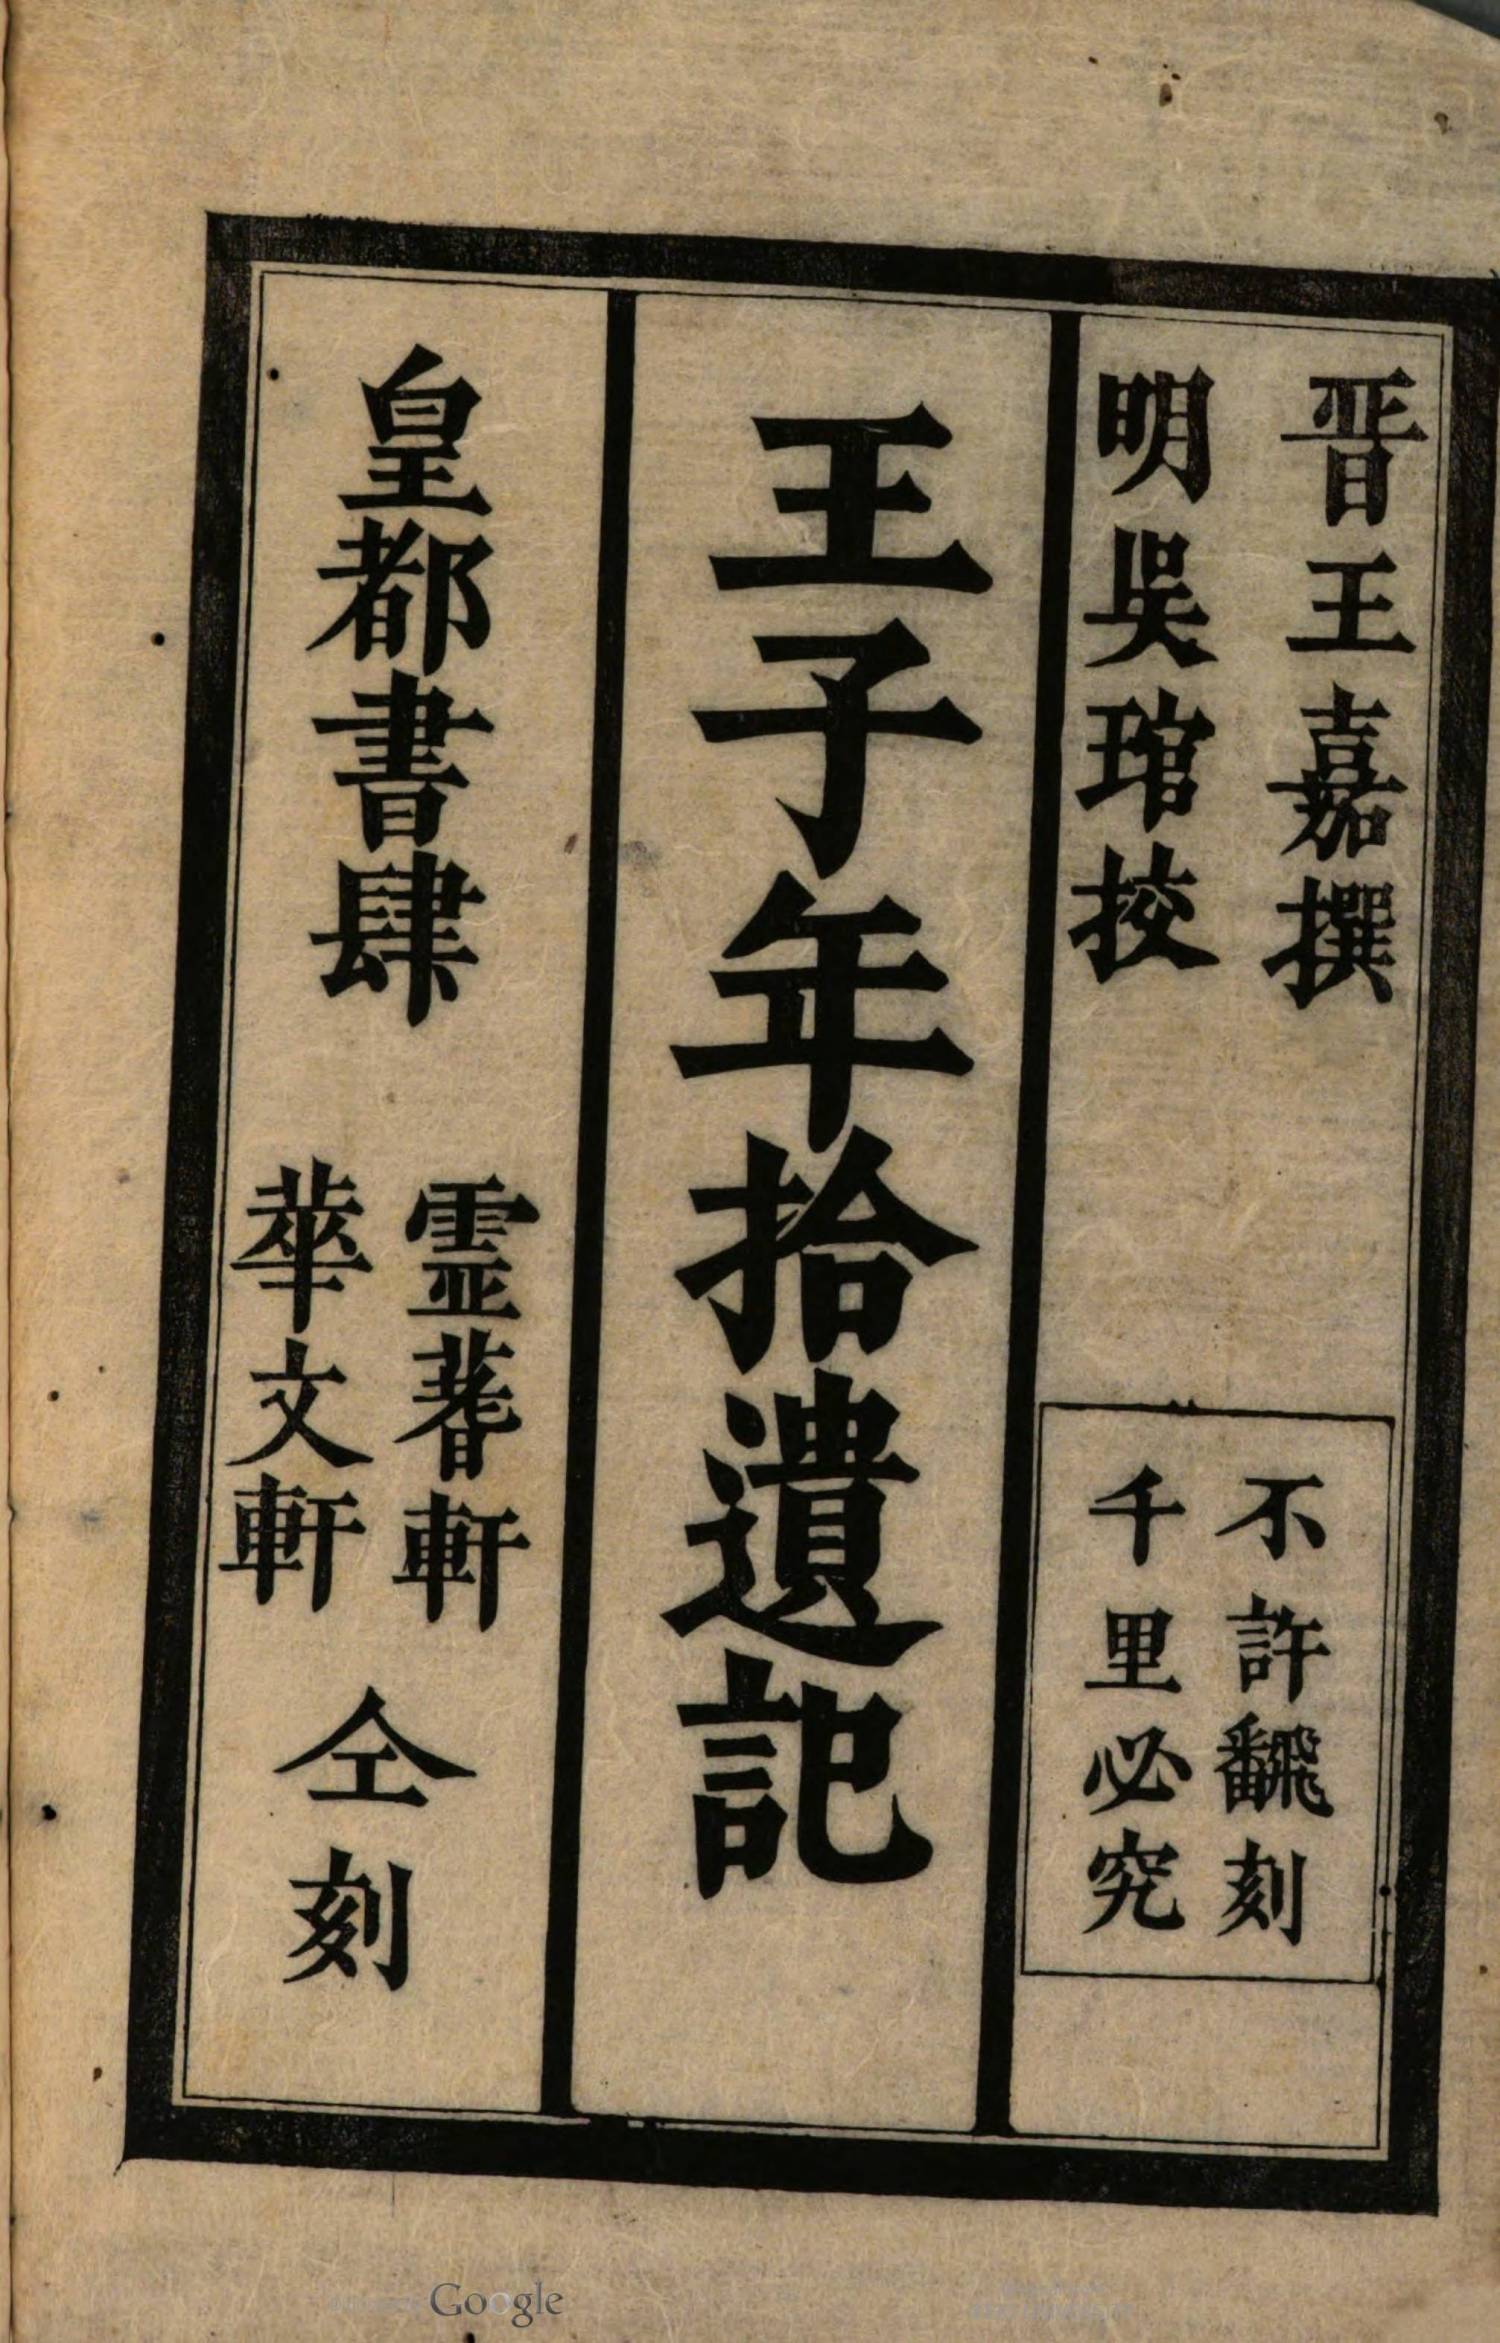 晋王嘉撰
明吳琯挍
不許飜刻
千里必究
王子年拾遺記
皇都書肆
霊蓍軒
華文軒
仝刻
Google